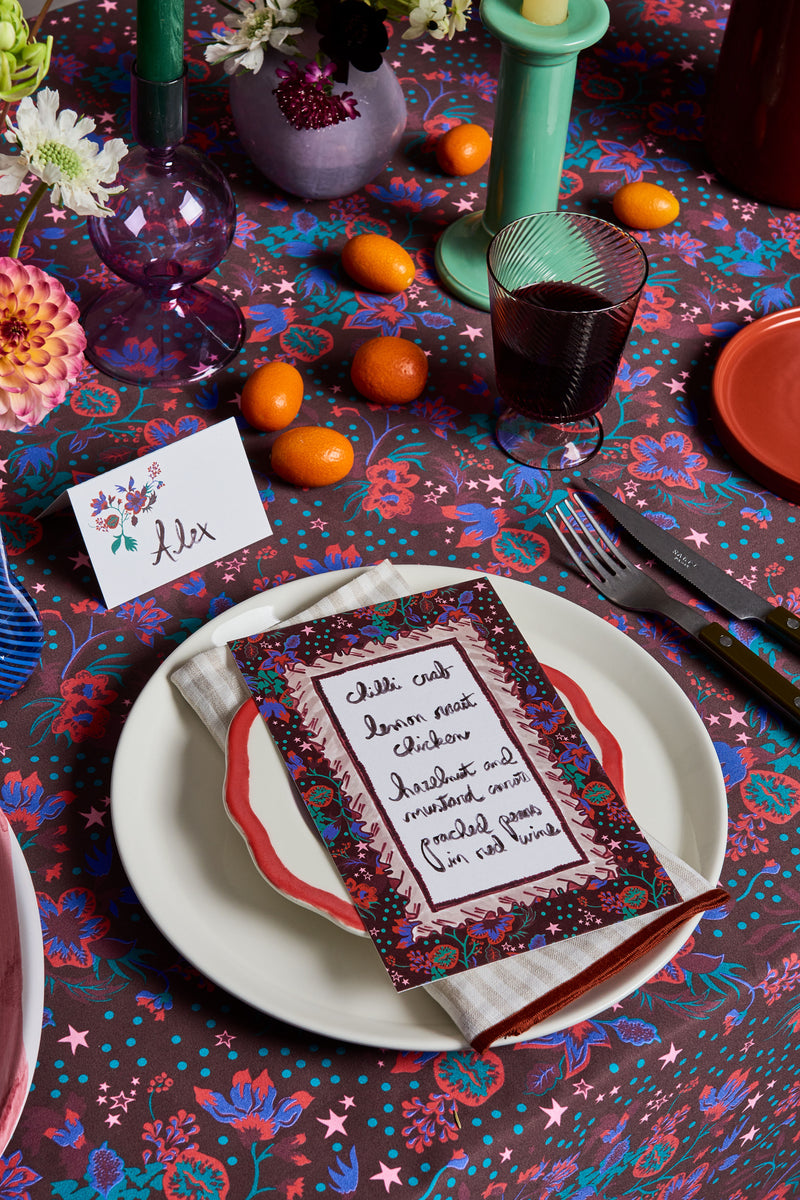 Alex
chilli crab
lemon roast
chicken
hazelnut and
mustard carrots
poached pears
in red wine